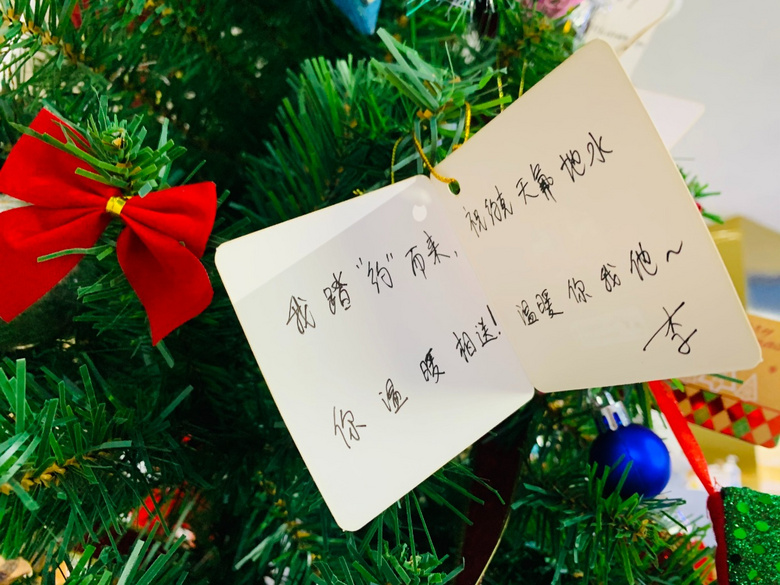 我踏"约"而来,
你温暖相送!
祝约克天氟地水
温暖你我他~
李